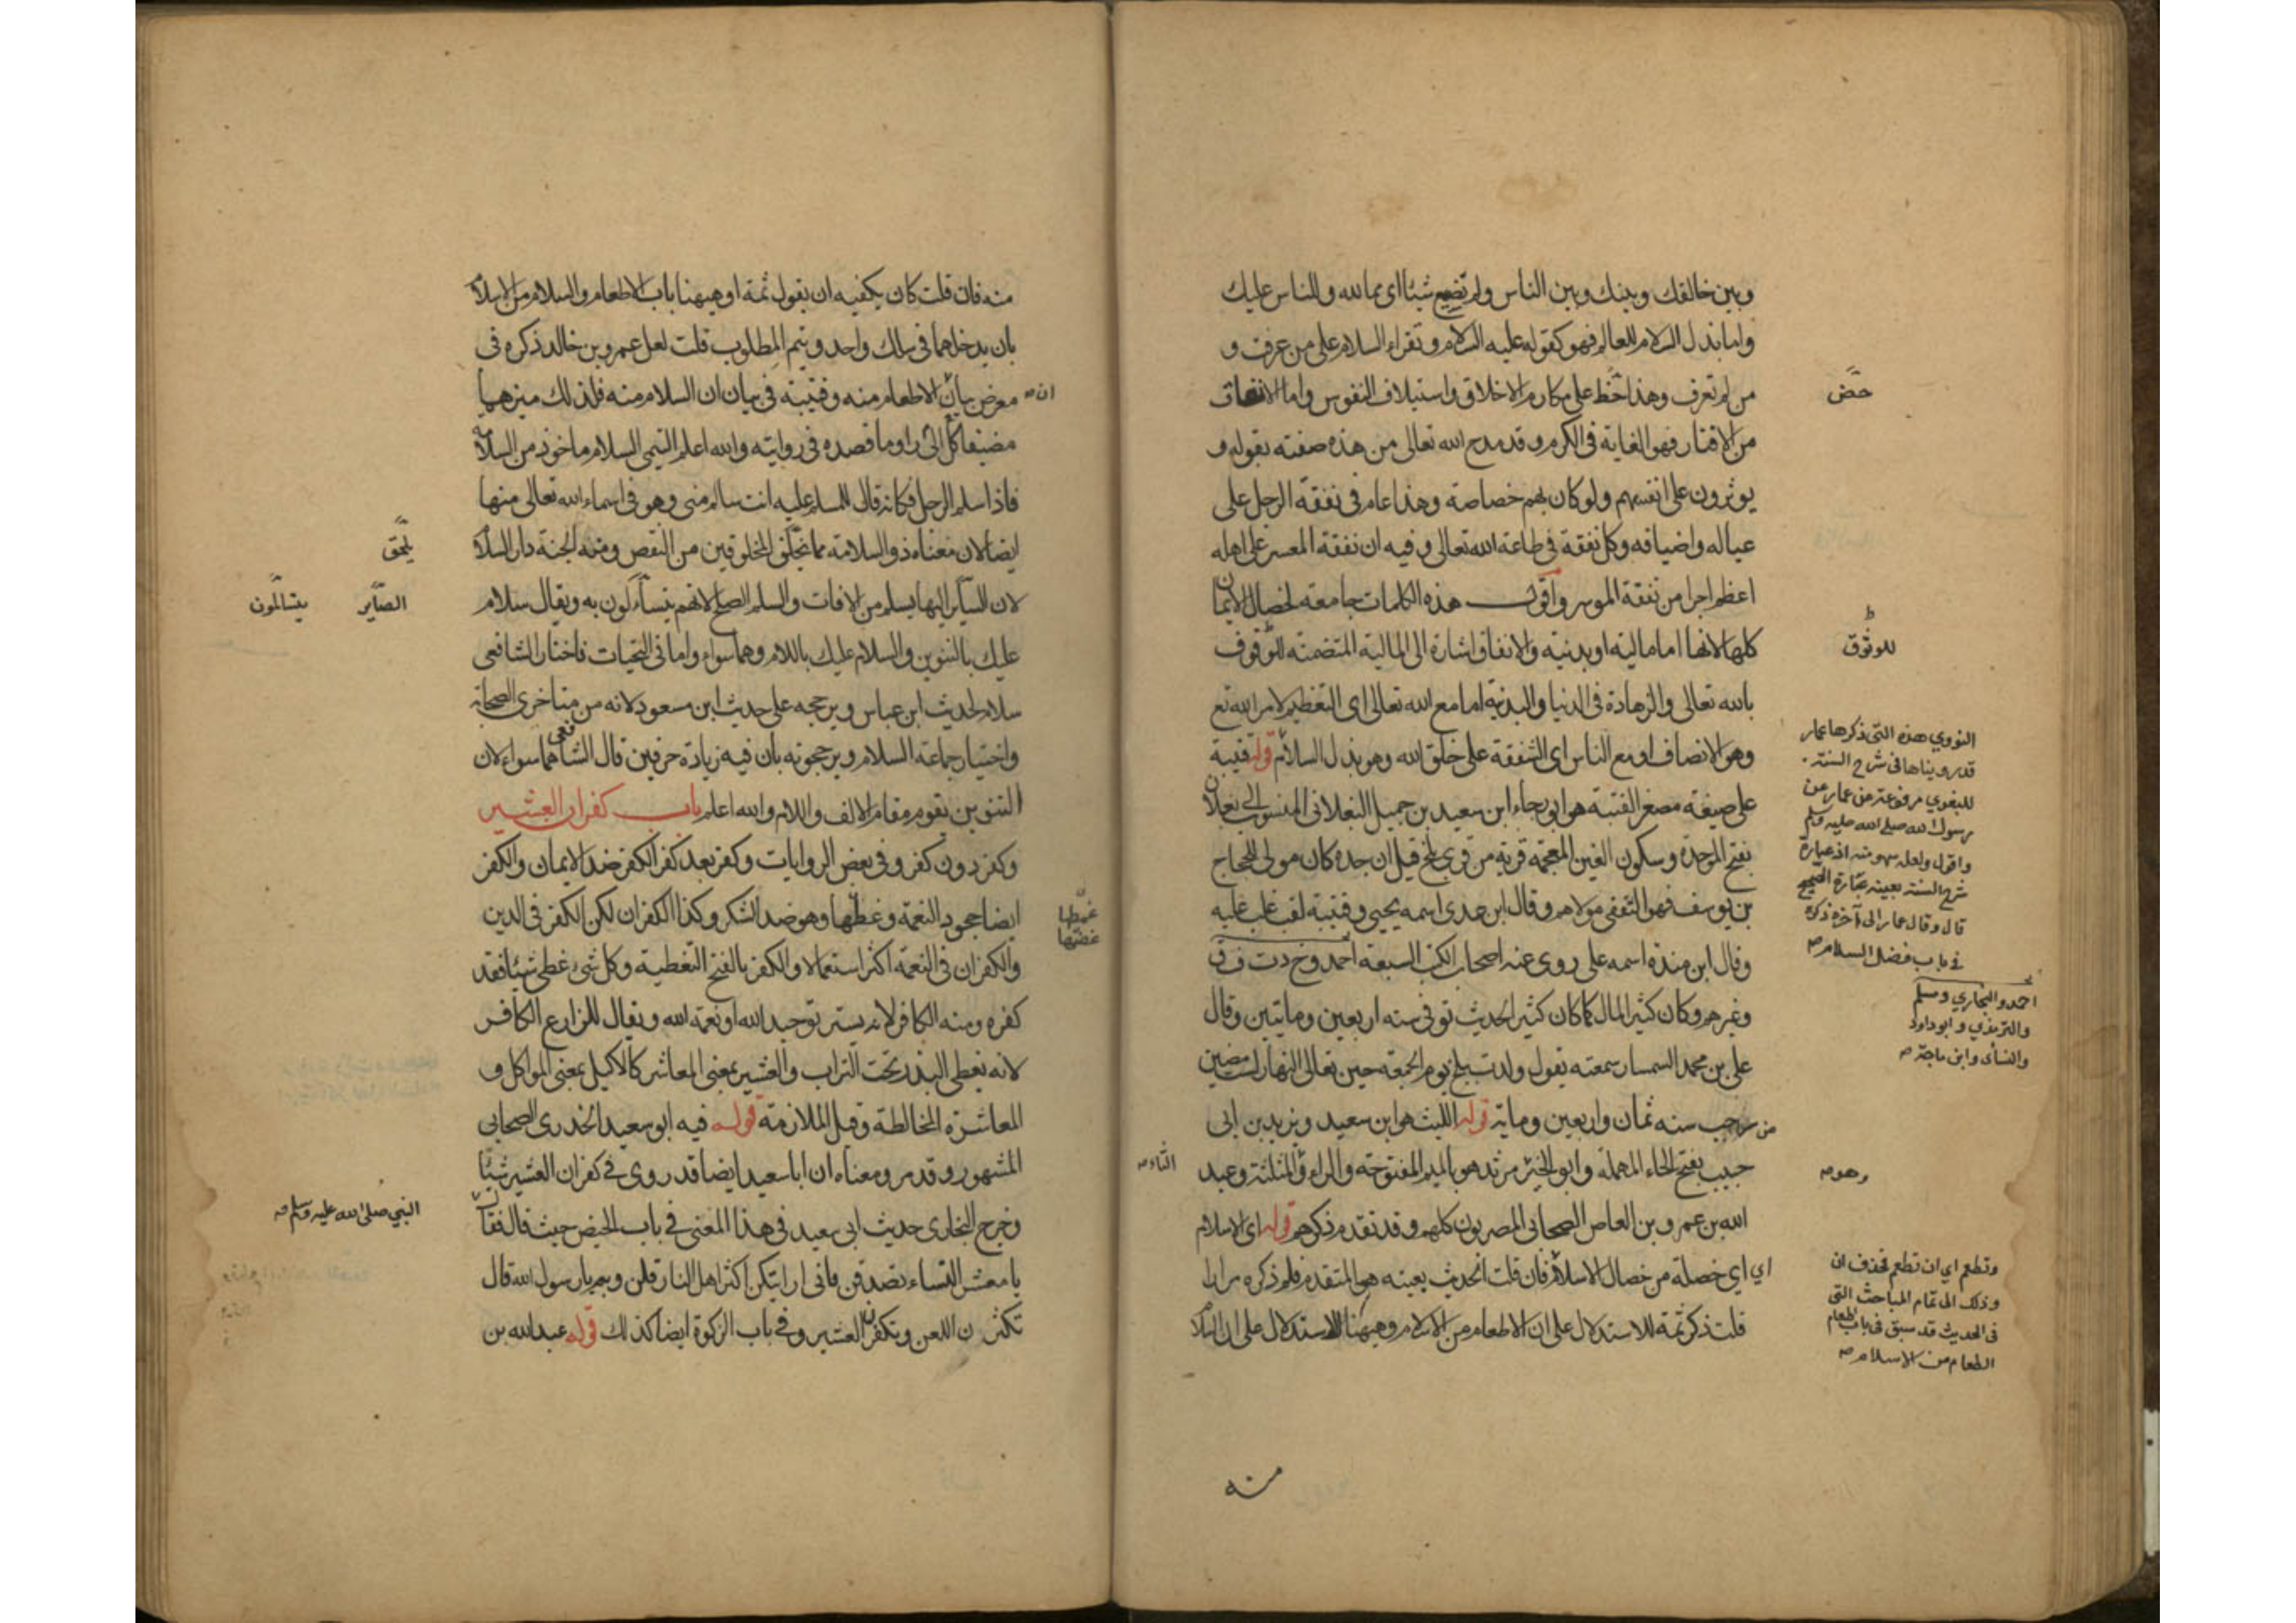 وبين خالقك وبينك وبين الناس ولم تضيع شيئا اى مما لله وللناس عليك
واما بذل السلام للعالم فهو كقوله عليه السلام وتقراء السلام على من عرفت و
من لم تعرف وهذا حظ على مكارم الاخلاق واستيلاف النفوس واما الانفاق
من الاقتار فهو الغاية فى الكرم وقد مدح الله تعالى من هذه صفته بقوله و
يوثرون على انفسهم ولو كان بهم خصاصة وهذا عام فى نفقة الرجل على
عياله واضيافه وكل نفقة فى طاعة الله تعالى وفيه ان نفقة المعسر على اهله
اعظم اجرا من نفقة الموسر واقول هذه الكلمات جامعة لخصال الايمان
كلها لانها اما مالية او بدنية والانفاق اشارة الى المالية المتضمنة للوقوف
بالله تعالى والزهادة فى الدنيا والبدنية اما مع الله تعالى اى التعظيم لامر الله تع
وهو الانصاف او مع الناس اى الشفقة على خلق الله وهو بذل السلام قوله قتيبة
على صيغة مصغر القتبة هو ابو رجاء ابن سعيد بن جميل البغلانى المنسوب الى بغلان
بفتح الموحدة وسكون الغين المعجمة قرية من قرى بلخ قيل ان جده كان مولى للحجاج
بن يوسف فهو الثقفى مولاهم وقال ابن عدى اسمه يحيى وقتيبة لقب غلب عليه
وقال ابن مندة اسمه على روى عنه اصحاب الكتب السبعة احمد وخ د ت ف ق
وغيرهم وكان كثير المال كما كان كثير الحديث توفى سنه اربعين ومايتين وقال
على بن محمد السمسار سمعته يقول ولدت ببلخ يوم الجمعة حين تعالى النهار لست مضين
من رجب سنه ثمان واربعين وماية قوله الليث هو ابن سعيد ويزيد بن ابى
حبيب بفتح الحاء المهملة وابو الخير مرثد هو بالميم المفتوحة والراء والمثلثة وعبد
الله بن عمرو بن العاص الصحابى المصريون كلهم وقد تقدم ذكرهم قوله اى الاسلام
اى اى خصلة من خصال الاسلام فان قلت الحديث بعينه هو المتقدم فلم ذكره مرارا
قلت ذكر ثمة للاستدلال على ان الاطعام من الاسلام وههنا للاستدلال على ان السلام
منه
حض
للوثوق
النووي هذه التى ذكرها عمار
قد رويناها فى شرح السنة
للبغوي مرفوعة عن عمار عن
رسول الله صلى الله عليه وسلم
واقول ولعله سهو منه اذ عبارة
شرح السنة بعينه عبارة الصحيح
قال وقال عمار الى آخره ذكره
فى باب فضل السلام صه
احمد والبخاري ومسلم
والترمذي وابو داود
والنسأى وابن ماجة صه
الثاء صه
وهو صه
وتطعم اي ان تطعم فحذف ان
وذلك الى تمام المباحث التى
فى الحديث قد سبق فى باب اطعام
الطعام من الاسلام صه
منه فان قلت كان يكفيه ان يقول ثمة او ههنا باب الاطعام والسلام من الاسلام
بان يدخلهما فى سلك واحد ويتم المطلوب قلت لعل عمرو بن خالد ذكره فى
معرض بيان الاطعام منه وقتيبة فى بيان ان السلام منه فلذلك ميزهما
مضيفا كلا الى راو وما قصده فى روايته والله اعلم التيمى السلام ماخوذ من السلامة
فاذا سلم الرجل فكانه قال للمسلم عليه انت سالم منى وهو فى اسماء الله تعالى منها
ايضا لان معناه ذو السلامة مما يتخلق المخلوقين من النقص ومنه الجنة دار السلام
لان الساير اليها يسلم من الافات والسلم الصلح لانهم يتساءلون به ويقال سلام
عليك بالتنوين والسلام عليك باللام وهما سواء واما فى التحيات فاختار الشافعى
سلام لحديث ابن عباس ويرجحه على حديث ابن مسعود لانه من متاخرى الصحابة
واختيار جماعة السلام ويرجحونه بان فيه زيادة حرفين قال الشافعى هما سواء لان
التنوين يقوم مقام الالف واللام والله اعلم باب كفران العشير
وكفر دون كفر وفى بعض الروايات وكفر بعد كفر الكفر ضد الايمان والكفر
ايضا جحود النعمة وغطها وهو ضد الشكر وكذا الكفران لكن الكفر فى الدين
والكفران فى النعمة اكثر استعمالا والكفر بالفتح التغطية وكل شىء غطى شيئا فقد
كفره ومنه الكافر لانه يستر توحيد الله او نعمة الله ويقال للزارع الكافر
لانه يغطى البذر تحت التراب والعشير بمعنى المعاشر كالاكيل بمعنى المواكل و
المعاشرة المخالطة وقيل الملازمة قوله فيه ابو سعيد الخدرى الصحابى
المشهور وقد مر ومعناه ان ابا سعيد ايضا قد روى فى كفران العشير شيئا
وخرج البخارى حديث ابى سعيد فى هذا المعنى فى باب الحيض حيث قال فقال
يا معشر النساء تصدقن فانى اريتكن اكثر اهل النار قلن وبم يا رسول الله قال
تكثرن اللعن وتكفرن العشير وفى باب الزكوة ايضا كذلك قوله عبد الله بن
ان صه
يلحق
الصاير
يتسالمون
غمطها
غمصها
النبي صلى الله عليه وسلم صه